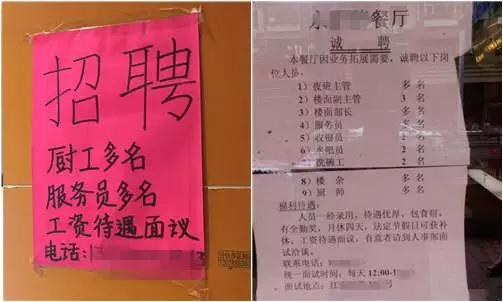 招聘
厨工多名
服务员多名
工资待遇面议
电话:1
3
永 餐厅
诚 聘
本餐厅因业务拓展需要，诚聘以下岗
位人员。
1）夜班主管 多 名
2）楼面副主管 3 名
3）楼面部长 多 名
4）服务员 多 名
5）收银员 2 名
6）水吧员 2 名
洗碗工 2 名
8）楼 杂 多 名
9）厨 师 多 名
福利待遇：
人员一经录用，待遇优厚，包食宿，
有全勤奖，月休四天，法定节假日可获补
休，工资待遇面议，有意者请到人事部面
试洽谈。
联系电话：
统一面试时间：每天 12:00-1
面试地点：江 号